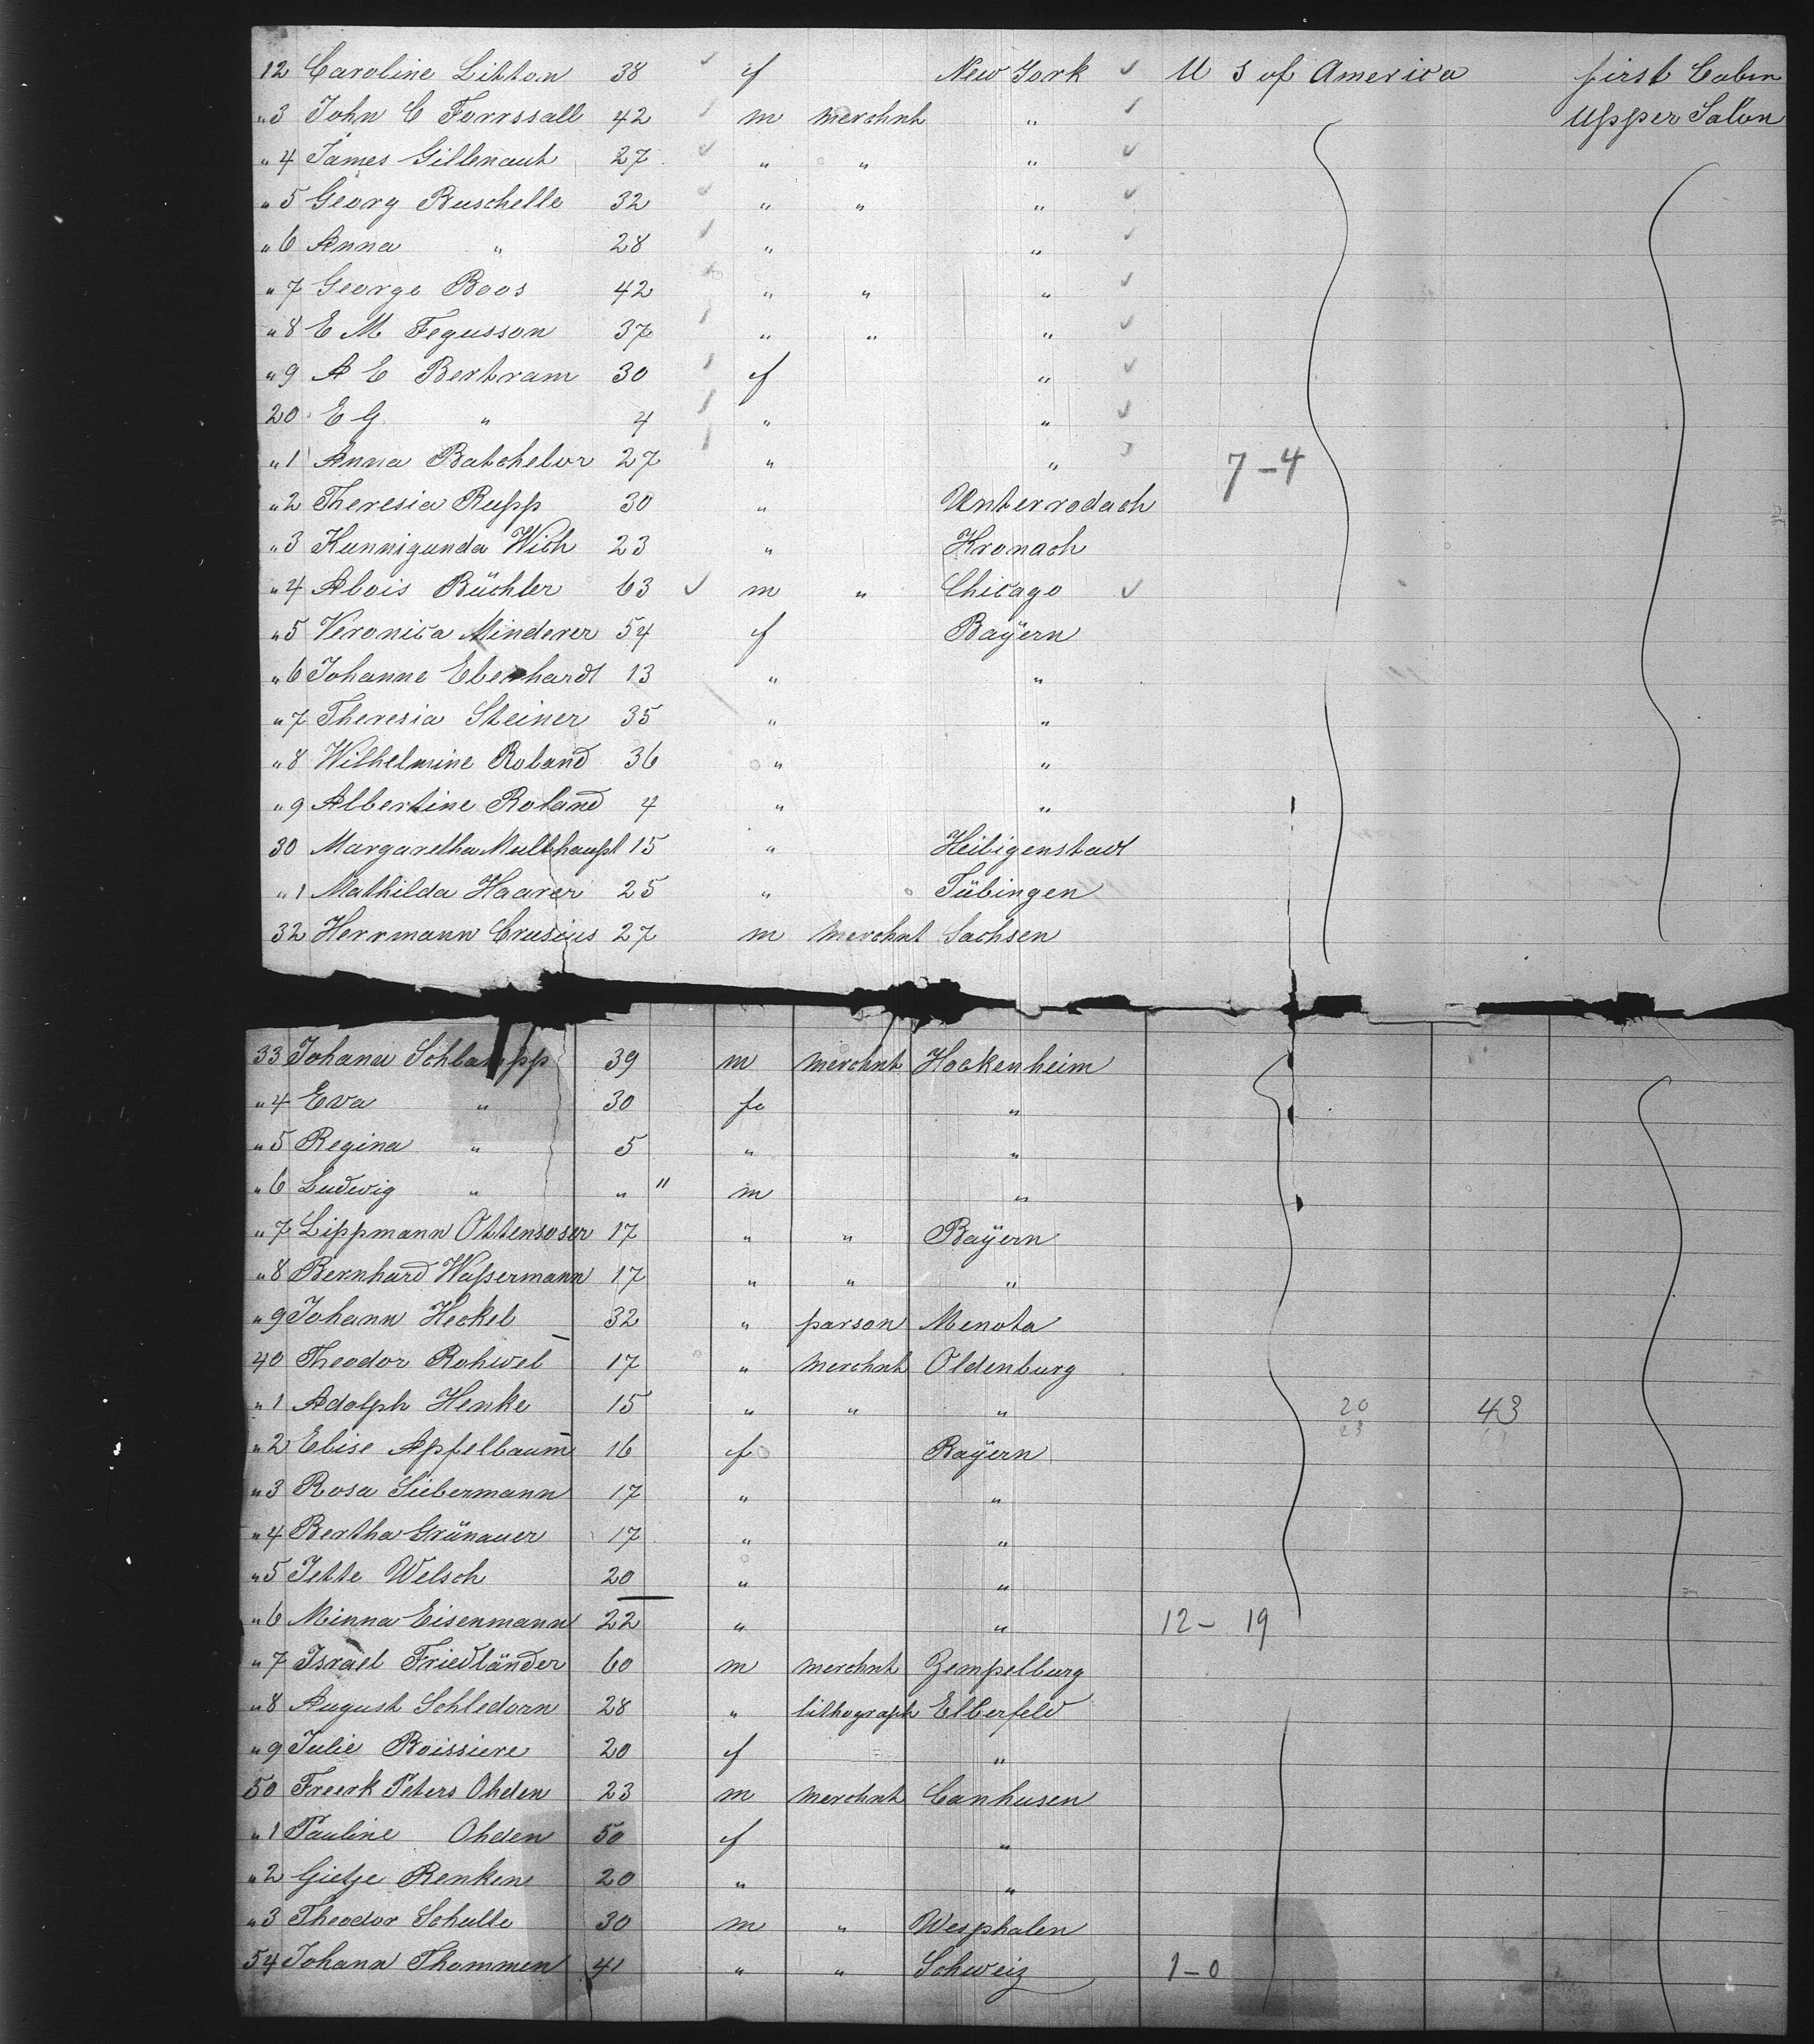 12 Caroline Litton 38 ✓ f New York ✓ U S of America first Cabin
"3 John C Forrssall 42 m merchnt " ✓ Upper Salon
"4 James Gillenaut 27 ✓ " " " ✓
"5 Georg Buschelle 32 ✓ " " " ✓
"6 Anna " 28 " " ✓
"7 George Boos 42 " " " ✓
"8 E M Fegusson 37 " " " ✓
"9 A E Bertram 30 f " ✓
20 E G " 4 " " ✓
"1 Anna Batchelor 27 " " 7-4
"2 Theresia Rupp 30 " Unterrodach
"3 Kunnigunda Wich 23 " Kronach
"4 Alois Büchler 63 ✓ m " Chicago ✓
"5 Veronica Minderer 54 f Baÿern
"6 Johanne Eberhardt 13 " "
"7 Theresia Steiner 35 " "
"8 Wilhelmine Roland 36 " "
"9 Albertine Roland 4 " "
30 Margaretha Multhaupt 15 " Heiligenstadt
"1 Mathilda Haarer 25 " Tübingen
32 Herrmann Crusius 27 m merchnt Sachsen
33 Johann Schlampp 39 m merchnt Hockenheim
"4 Eva " 30 f "
"5 Regina " 5 " "
"6 Ludwig " " " m "
"7 Lippmann Ottensoser 17 " " Baÿern
"8 Bernhard Waßermann 17 " " "
"9 Johann Heckel 32 " parson Menota
40 Theodor Rohwel 17 " merchnt Oldenburg
"1 Adolph Henke 15 " " " 20 43
23
"2 Elise Apfelbaum 16 f Baÿern
"3 Rosa Liebermann 17 " "
"4 Bertha Grünauer 17 " "
"5 Jette Welsch 20 " "
"6 Minna Eisenmann 22 " " 12 - 19
"7 Israel Friedländer 60 m merchnt Zempelburg
"8 August Schledorn 28 " lithograph Elberfeld
"9 Julie Boissiere 20 f "
50 Freerk Peters Ohden 23 m merchnt Canhusen
"1 Pauline Ohden 50 f "
"2 Gietje Renken 20 " "
"3 Theodor Schulte 30 m " Wesphalen
54 Johann Thommen 41 " " Schweiz 1-0